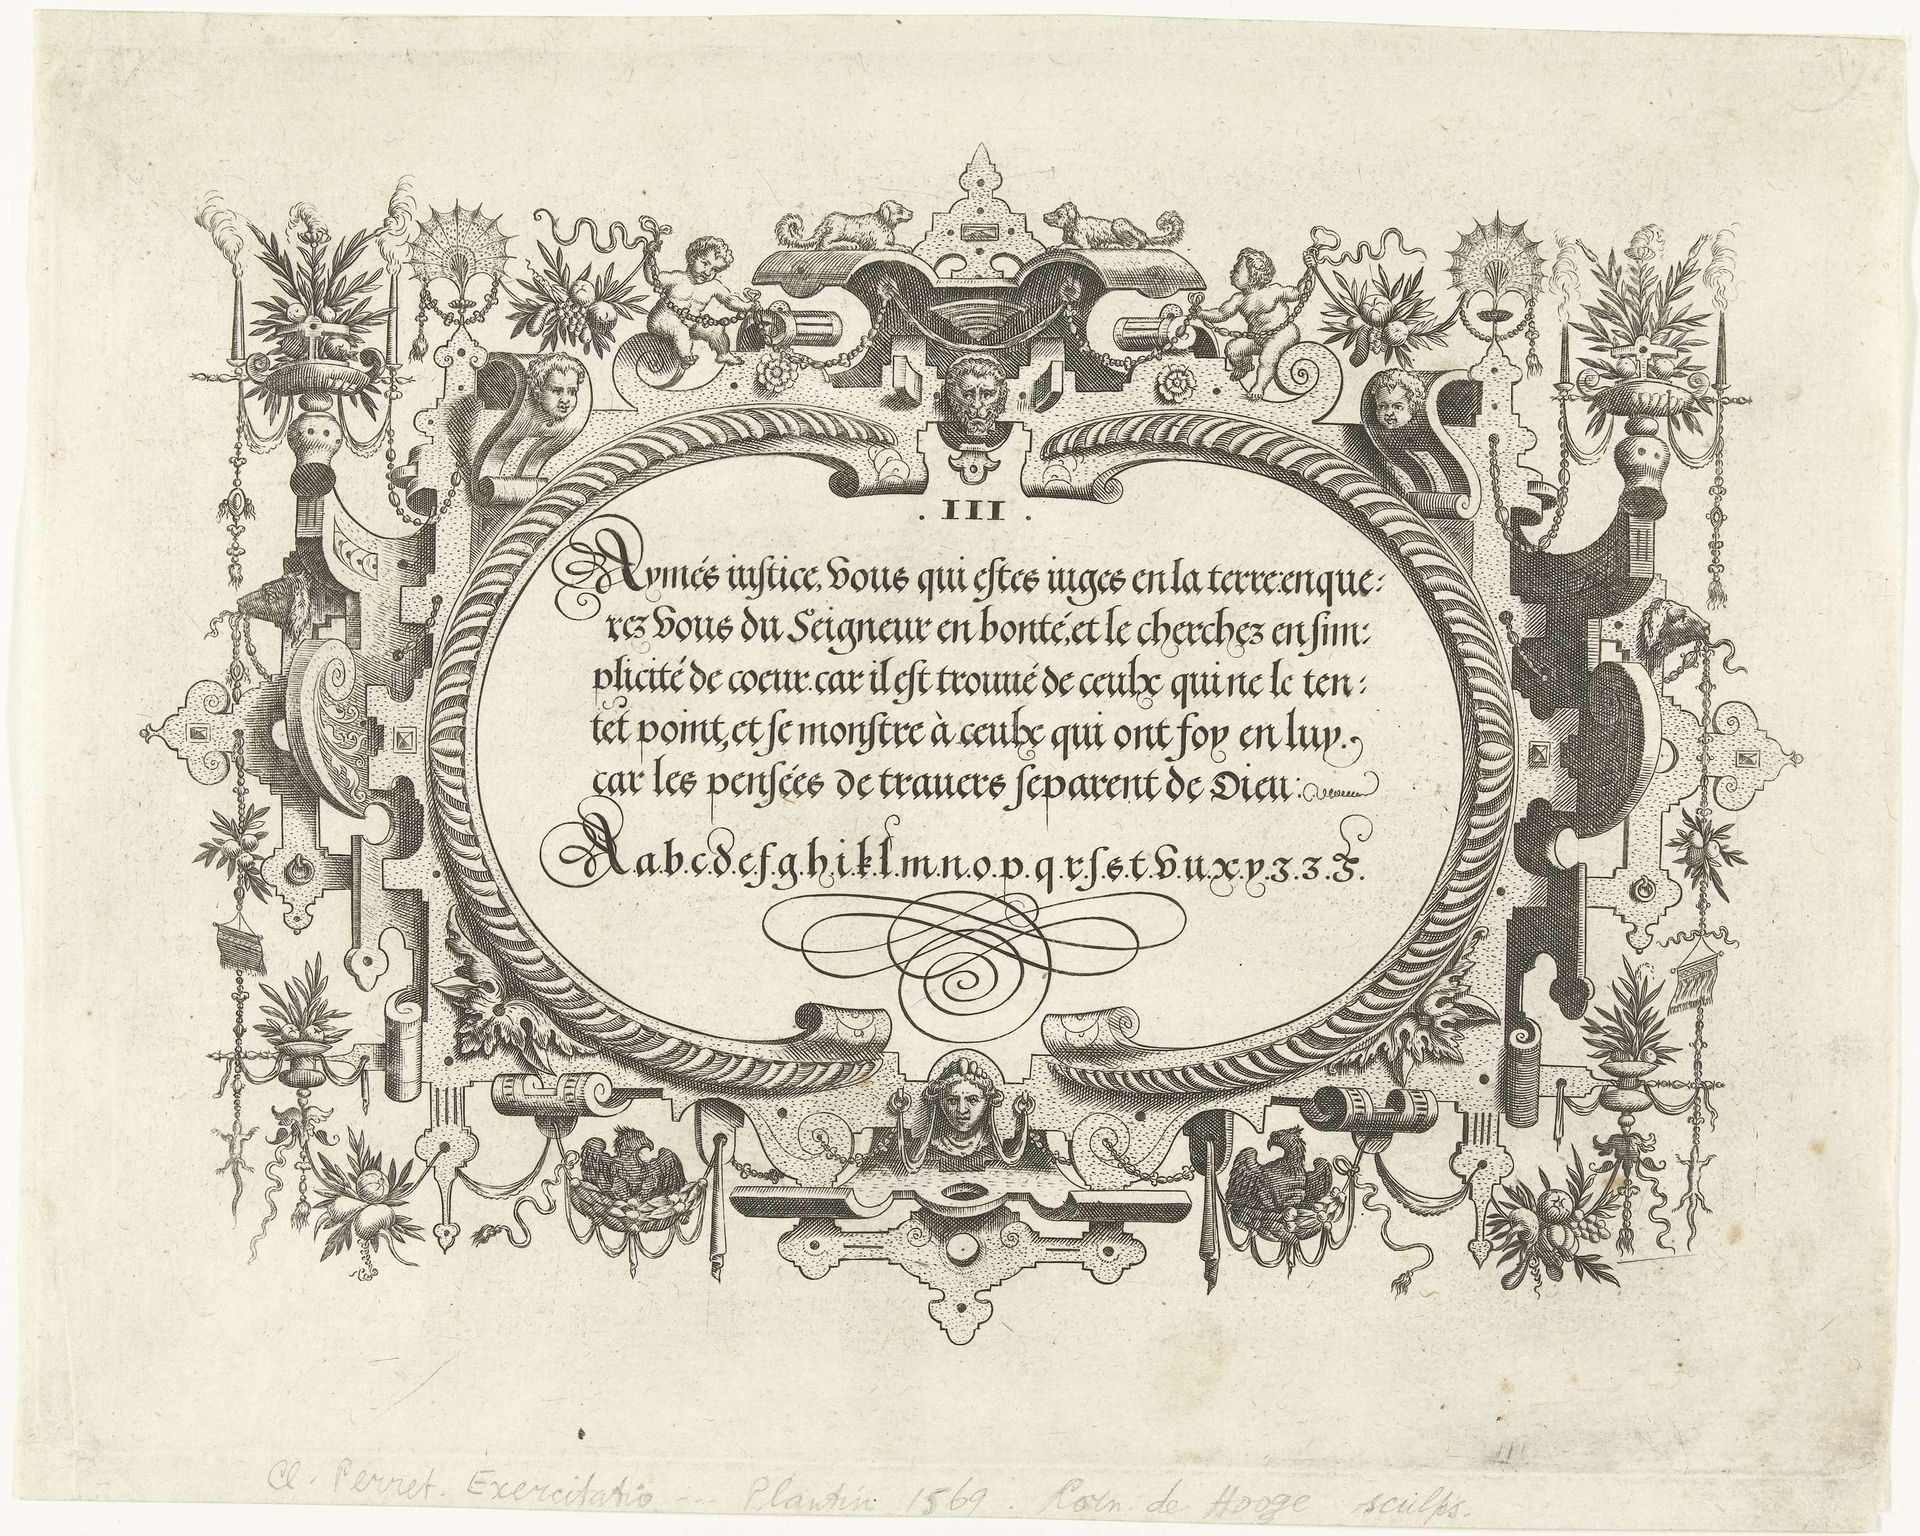 . III .
Aymés iustice, vous qui estes iuges en la terre: enque:
rez vous du Seigneur en bonté, et le cherchez en sim:
plicité de coeur. car il est trouué de ceulx qui ne le ten:
tet point, et se monstre à ceulx qui ont foy en luy.
car les pensées de trauers separent de Dieu:
A a.b.c.d.e.f.g.h.i.k.l.m.n.o.p.q.r.s.s.t.v.u.x.y.z.z.
Cl. Perret. Exercitatio --- Plantin 1569. Corn. de Hooge sculps.